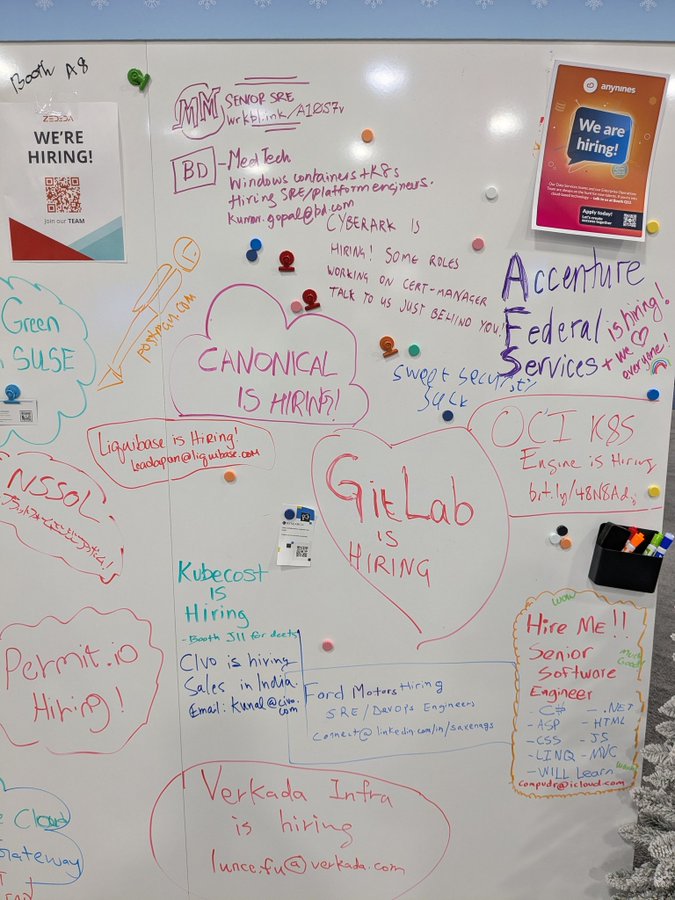 Booth A8
ZEDEDA
WE'RE
HIRING!
Join our TEAM
MM
SENIOR SRE
BD
- MedTech
Windows containers + K8s
Hiring SRE/platform engineers.
kumar.gopal@bd.com
CYBERARK IS
HIRING! SOME ROLES
WORKING ON CERT-MANAGER
TALK TO US JUST BEHIND YOU!
anynines
We are
hiring!
Apply today!
Let's create
awesome together
Accenture
Federal is hiring!
Services + we
everyone!
Green
SUSE
CANONICAL
IS HIRING?!
sweet security
suck
Liquibase is Hiring!
leadapan@liquibase.com
OCI K8S
Engine is Hiring
NSSOL
GitLab
IS
HIRING
Kubecost
IS
Hiring
- Booth J11 for deets
Permit.io
Hiring!
Civo is hiring
Sales in India.
Email: kunal@civo.com
Ford Motors Hiring
SRE/DevOps Engineers
Connect@linkedin.com/in/saxenags
WOW
Hire Me!!
Senior
Software
Engineer
- C# - .NET
- ASP - HTML
- CSS - JS
- LINQ - MVC
- WILL Learn
compudr@icloud.com
Verkada Infra
is hiring
lunce.fu@verkada.com
Cloud
Gateway